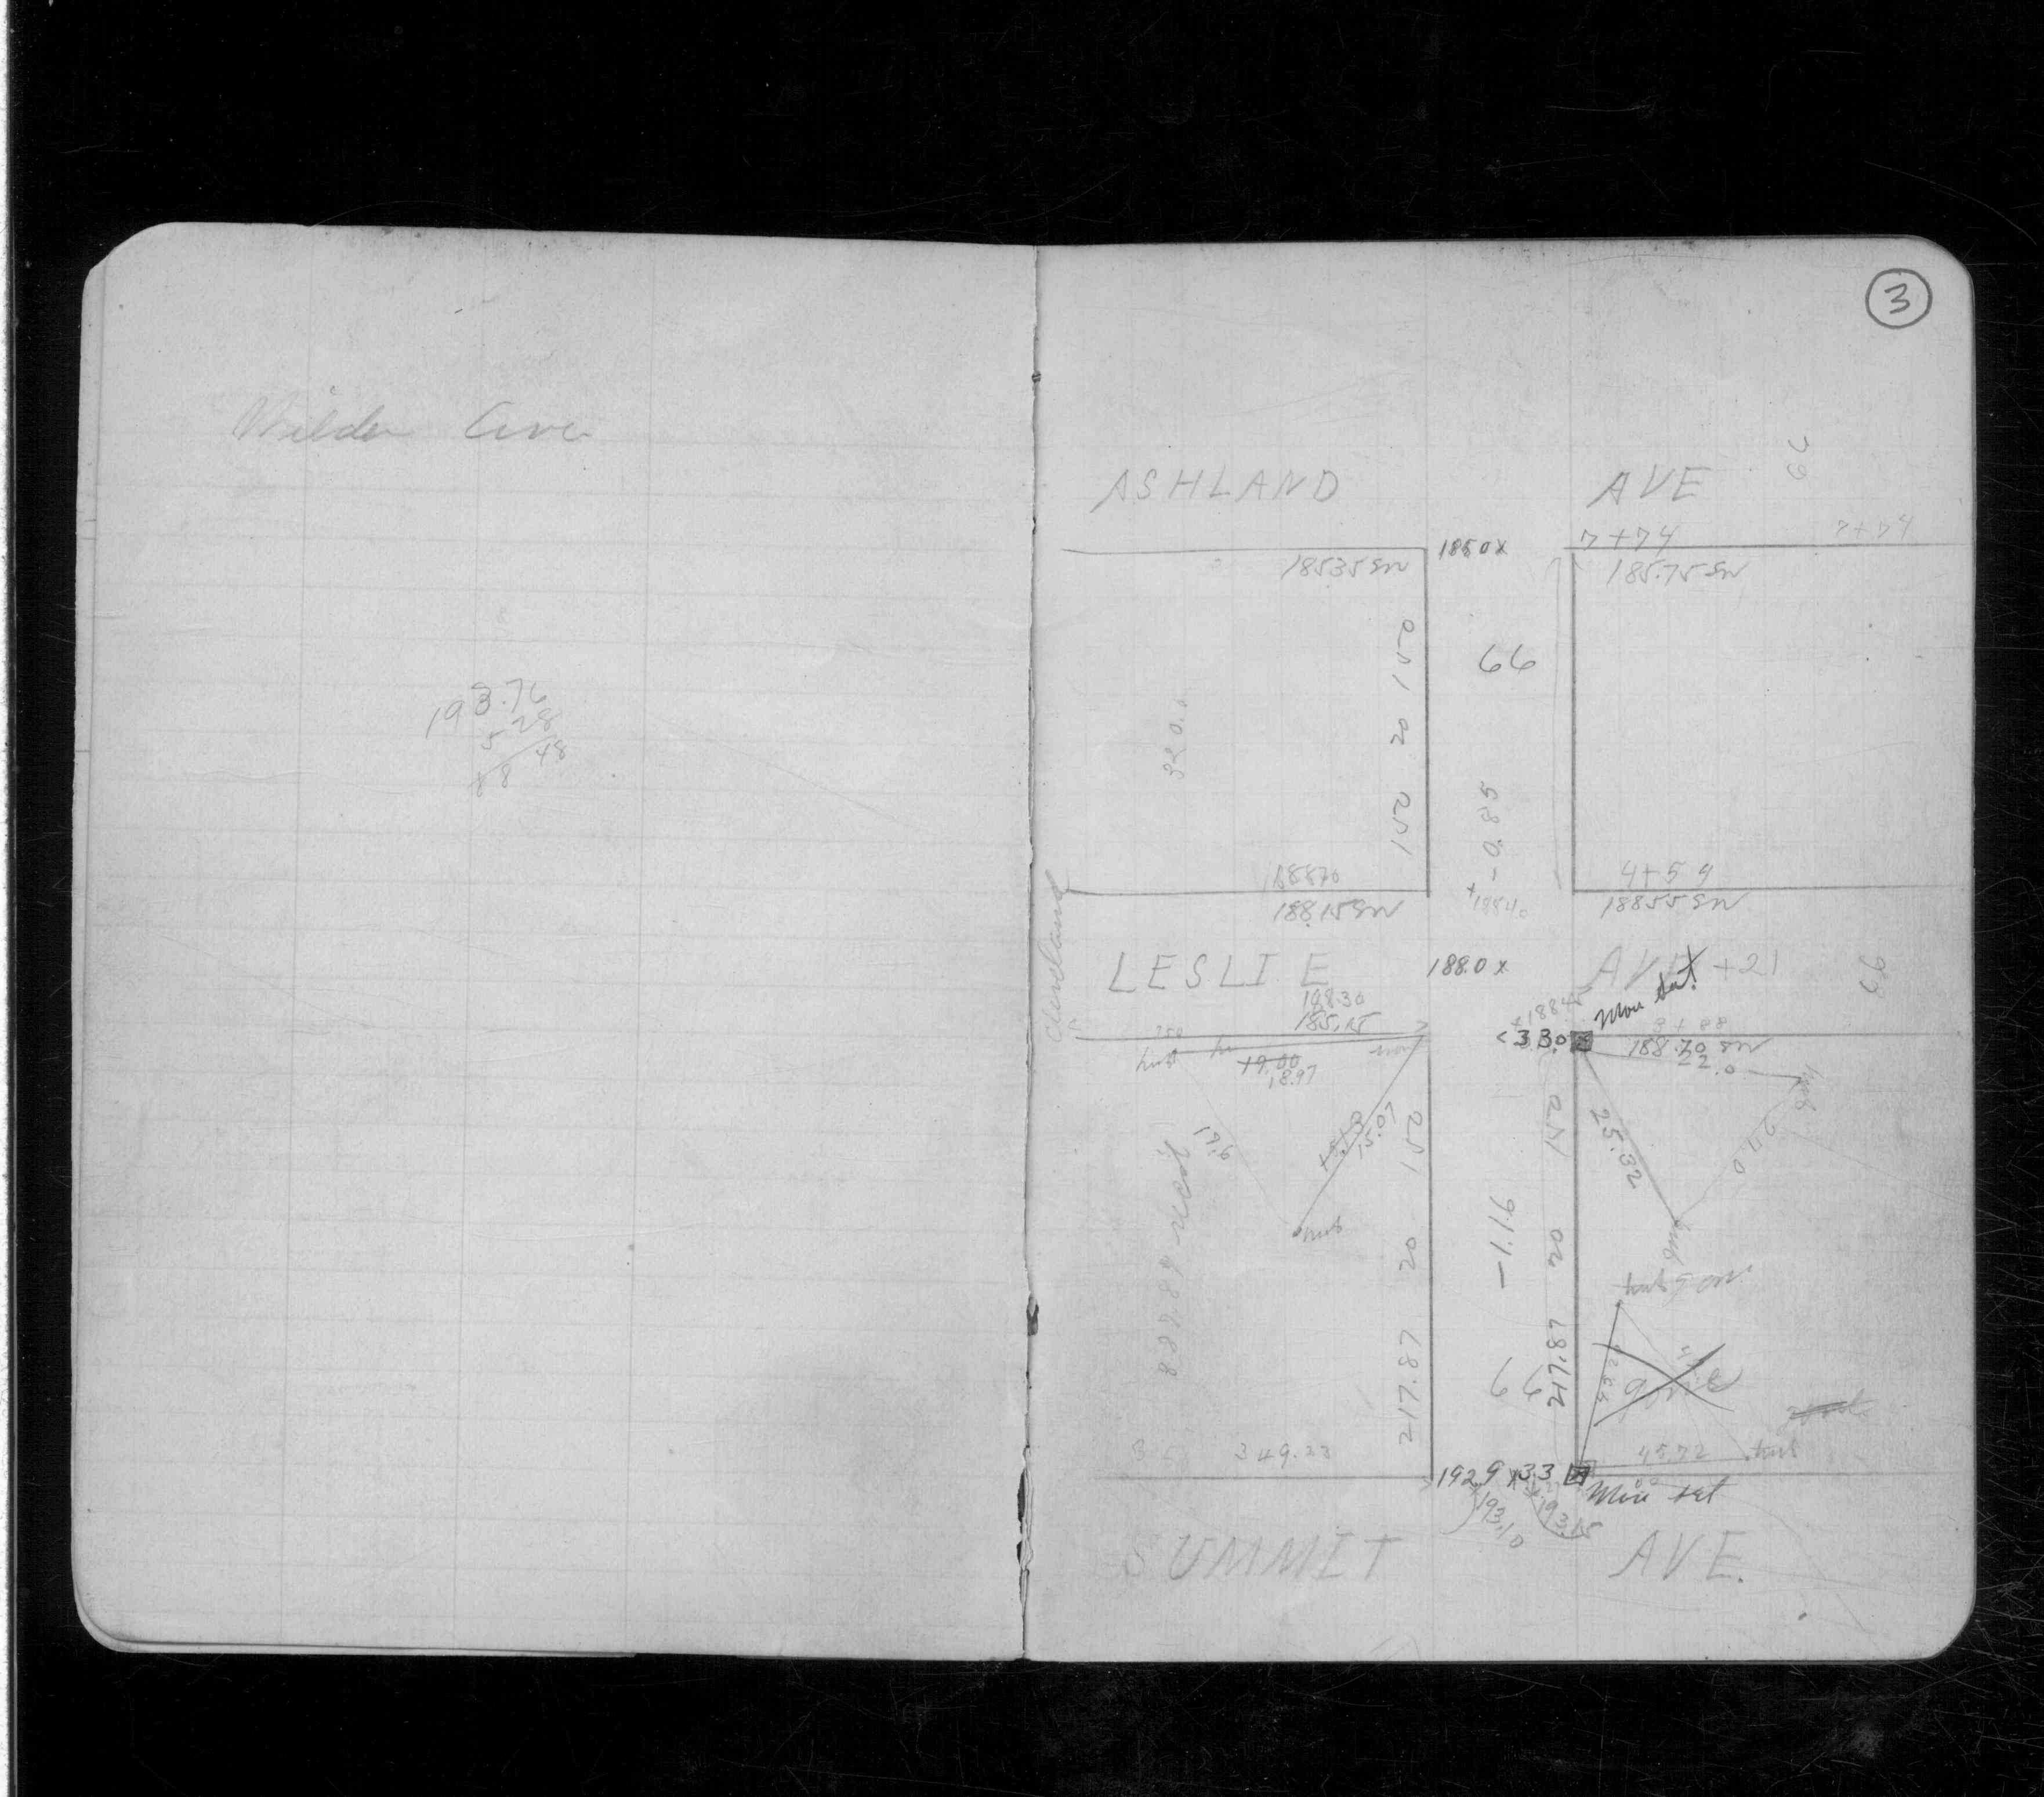 Wilder Ave
193.76
5 28
8 48
3
66
ASHLAND AVE
185.0 x
7+74
7+74
185.35 SW
185.75 SW
150
66
20
320.
-0.85
150
188 70
4+59
188.15 SW
188 55 SW
+188.40
Cleveland
LESLIE AVE
+21
66
188.0 x
Mon Set
198.30
185.15
+188.45
3+88
33.0
188.70 SW
22.0
hub
19.00
18.97
mon
hub
15.07
150
150
25.32
27.0
17.6
hub
hub
20
20
-1.16
887.89 west
hub gone
217.87
217.87
66
gone
349.23
45.72
hub
192.9 x 33
Mon set
193.10
193.15
SUMMIT AVE.